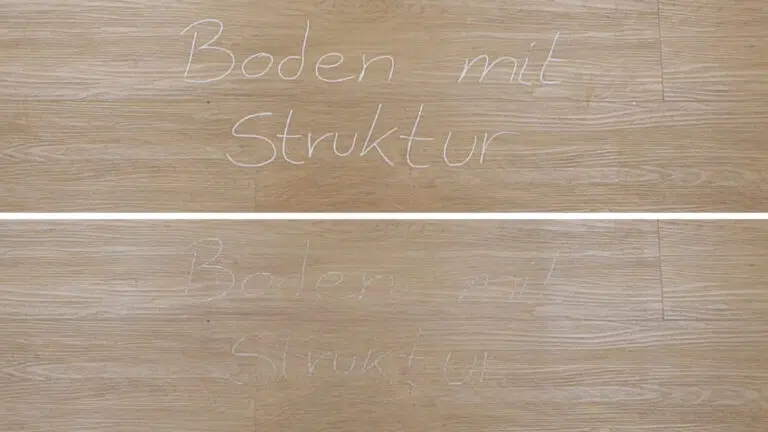 Boden mit
Struktur
Boden mit
Struktur